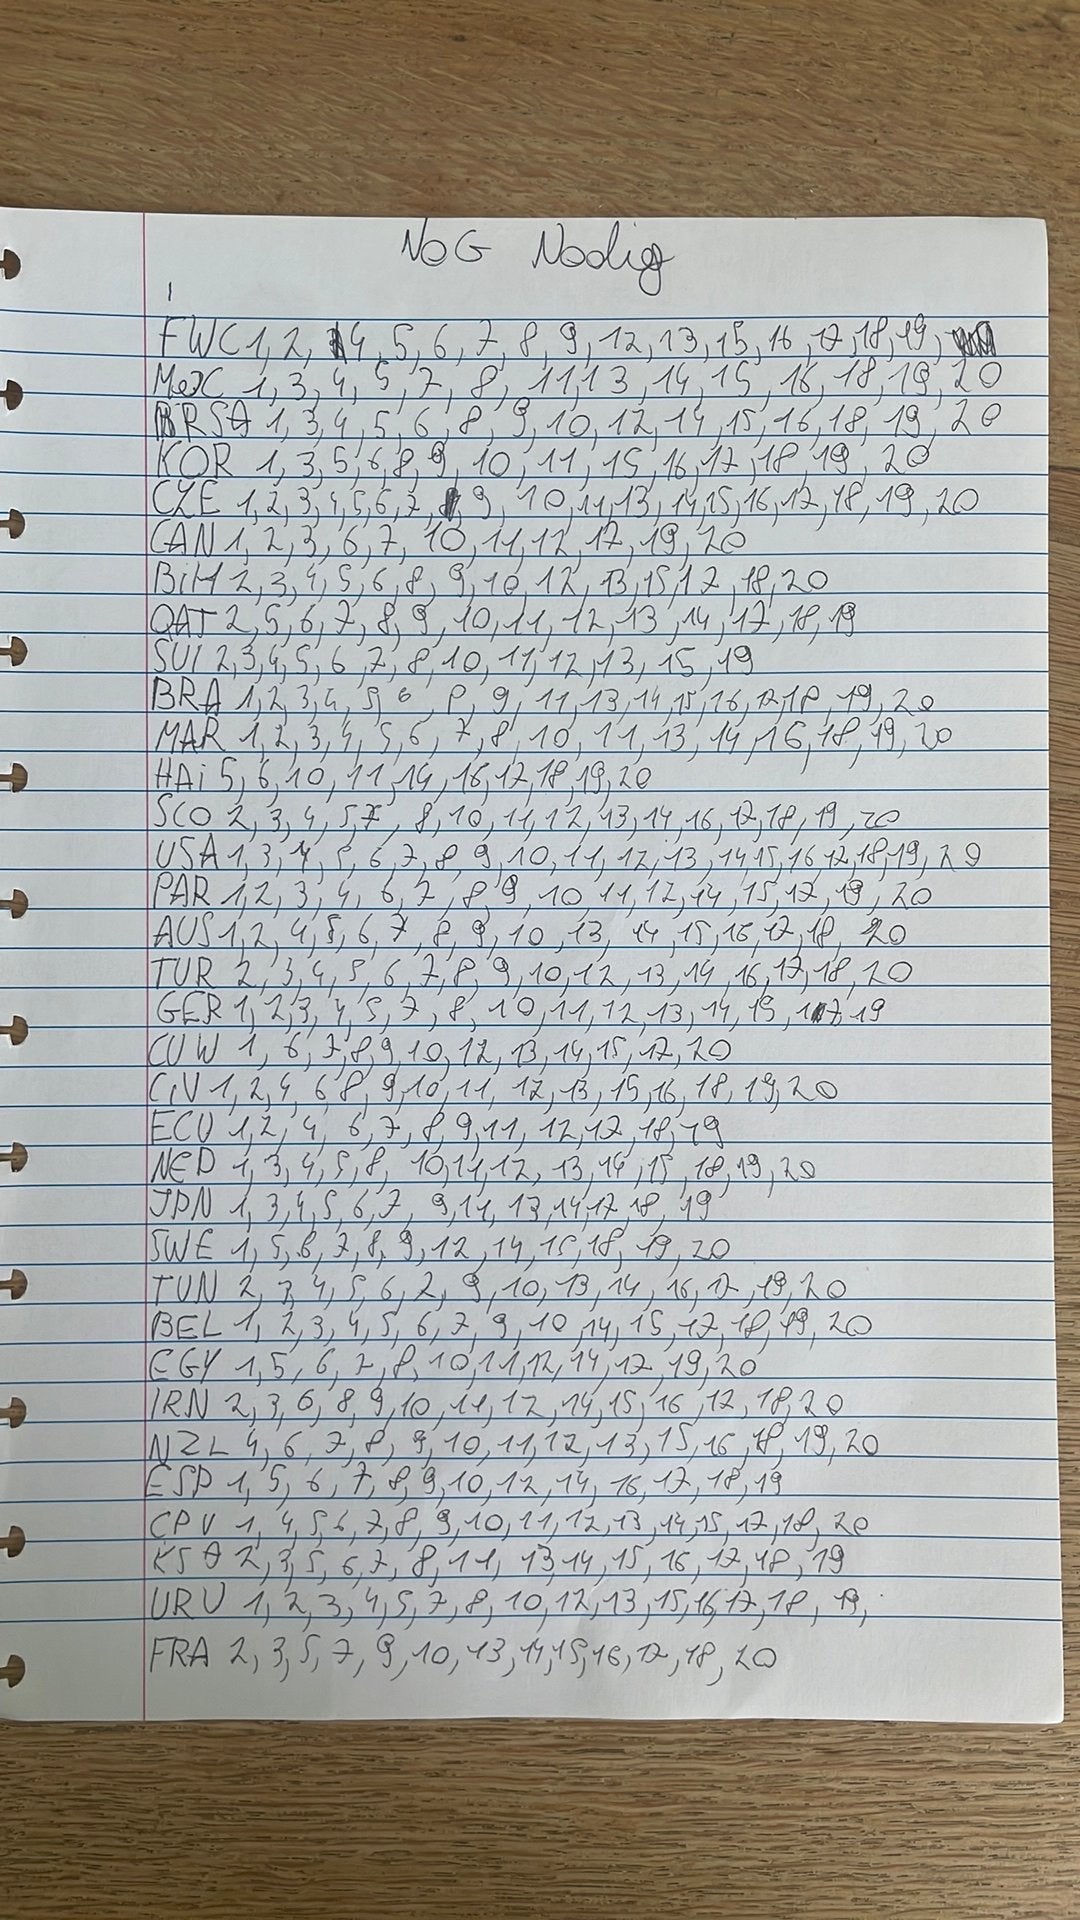 NoG Nodig
FWC 1, 2, 4, 5, 6, 7, 8, 9, 12, 13, 15, 16, 17, 18, 19,
MeXC 1, 3, 4, 5, 7, 8, 11, 13, 14, 15, 16, 18, 19, 20
RSA 1, 3, 4, 5, 6, 8, 9, 10, 12, 14, 15, 16, 18, 19, 20
KOR 1, 3, 5, 6, 8, 9, 10, 11, 15, 16, 17, 18, 19, 20
CZE 1, 2, 3, 4, 5, 6, 7, 9, 10, 11, 13, 14, 15, 16, 17, 18, 19, 20
CAN 1, 2, 3, 6, 7, 10, 11, 12, 17, 19, 20
BiH 2, 3, 4, 5, 6, 8, 9, 10, 12, 13, 15, 17, 18, 20
QAT 2, 5, 6, 7, 8, 9, 10, 11, 12, 13, 14, 17, 18, 19
SUI 2, 3, 4, 5, 6, 7, 8, 10, 11, 12, 13, 15, 19
BRA 1, 2, 3, 4, 5, 6, 8, 9, 11, 13, 14, 15, 16, 17, 18, 19, 20
MAR 1, 2, 3, 4, 5, 6, 7, 8, 10, 11, 13, 14, 16, 18, 19, 20
HAi 5, 6, 10, 11, 14, 16, 17, 18, 19, 20
SCO 2, 3, 4, 5, 7, 8, 10, 11, 12, 13, 14, 16, 17, 18, 19, 20
USA 1, 3, 4, 5, 6, 7, 8, 9, 10, 11, 12, 13, 14, 15, 16, 17, 18, 19, 20
PAR 1, 2, 3, 4, 6, 7, 8, 9, 10, 11, 12, 14, 15, 17, 19, 20
AUS 1, 2, 4, 5, 6, 7, 8, 9, 10, 13, 14, 15, 16, 17, 18, 20
TUR 2, 3, 4, 5, 6, 7, 8, 9, 10, 12, 13, 14, 16, 17, 18, 20
GER 1, 2, 3, 4, 5, 7, 8, 10, 11, 12, 13, 14, 15, 17, 19
CUW 1, 6, 7, 8, 9, 10, 12, 13, 14, 15, 17, 20
CiV 1, 2, 4, 6, 8, 9, 10, 11, 12, 13, 15, 16, 18, 19, 20
ECU 1, 2, 4, 6, 7, 8, 9, 11, 12, 17, 18, 19
NED 1, 3, 4, 5, 8, 10, 11, 12, 13, 14, 15, 18, 19, 20
JPN 1, 3, 4, 5, 6, 7, 9, 11, 13, 14, 17, 18, 19
SWE 1, 5, 6, 7, 8, 9, 12, 14, 15, 18, 19, 20
TUN 2, 3, 4, 5, 6, 7, 9, 10, 13, 14, 16, 17, 19, 20
BEL 1, 2, 3, 4, 5, 6, 7, 9, 10, 14, 15, 17, 18, 19, 20
EGY 1, 5, 6, 7, 8, 10, 11, 12, 14, 17, 19, 20
IRN 2, 3, 6, 8, 9, 10, 11, 12, 14, 15, 16, 17, 18, 20
NZL 4, 6, 7, 8, 9, 10, 11, 12, 13, 15, 16, 18, 19, 20
ESP 1, 5, 6, 7, 8, 9, 10, 12, 14, 16, 17, 18, 19
CPV 1, 4, 5, 6, 7, 8, 9, 10, 11, 12, 13, 14, 15, 17, 18, 20
KSA 2, 3, 5, 6, 7, 8, 11, 13, 14, 15, 16, 17, 18, 19
URU 1, 2, 3, 4, 5, 7, 8, 10, 12, 13, 15, 16, 17, 18, 19,
FRA 2, 3, 5, 7, 9, 10, 13, 14, 15, 16, 17, 18, 20